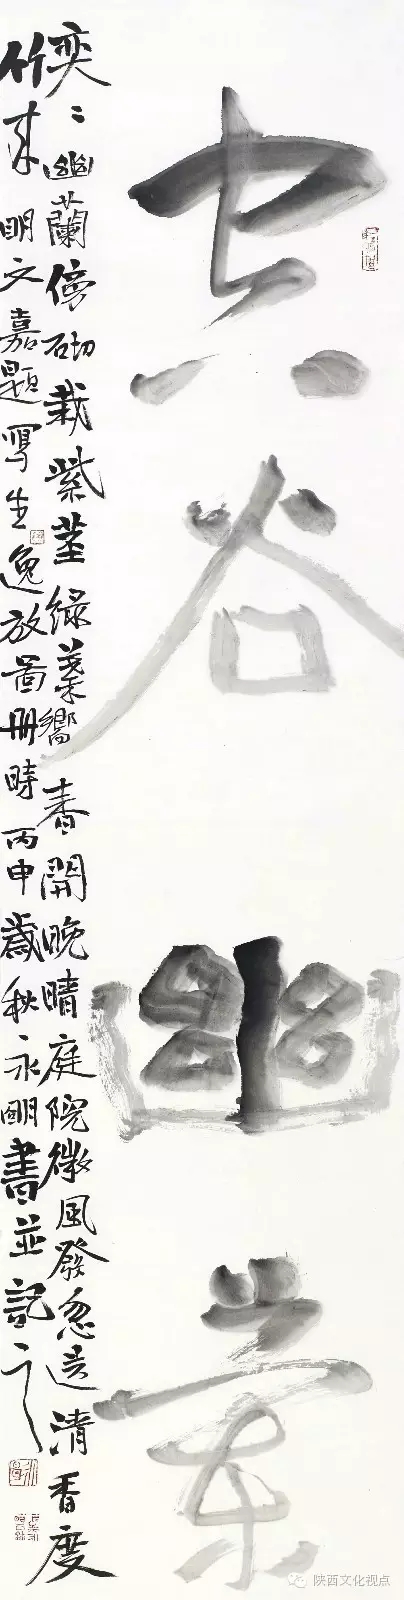 空谷幽蘭
奕〻幽蘭傍砌栽紫莖綠葉嚮春開晚晴庭院微風發忽送清香度
竹来明文嘉題寫生逸放圖冊時丙申歲秋永明書並記之
陕西文化视点